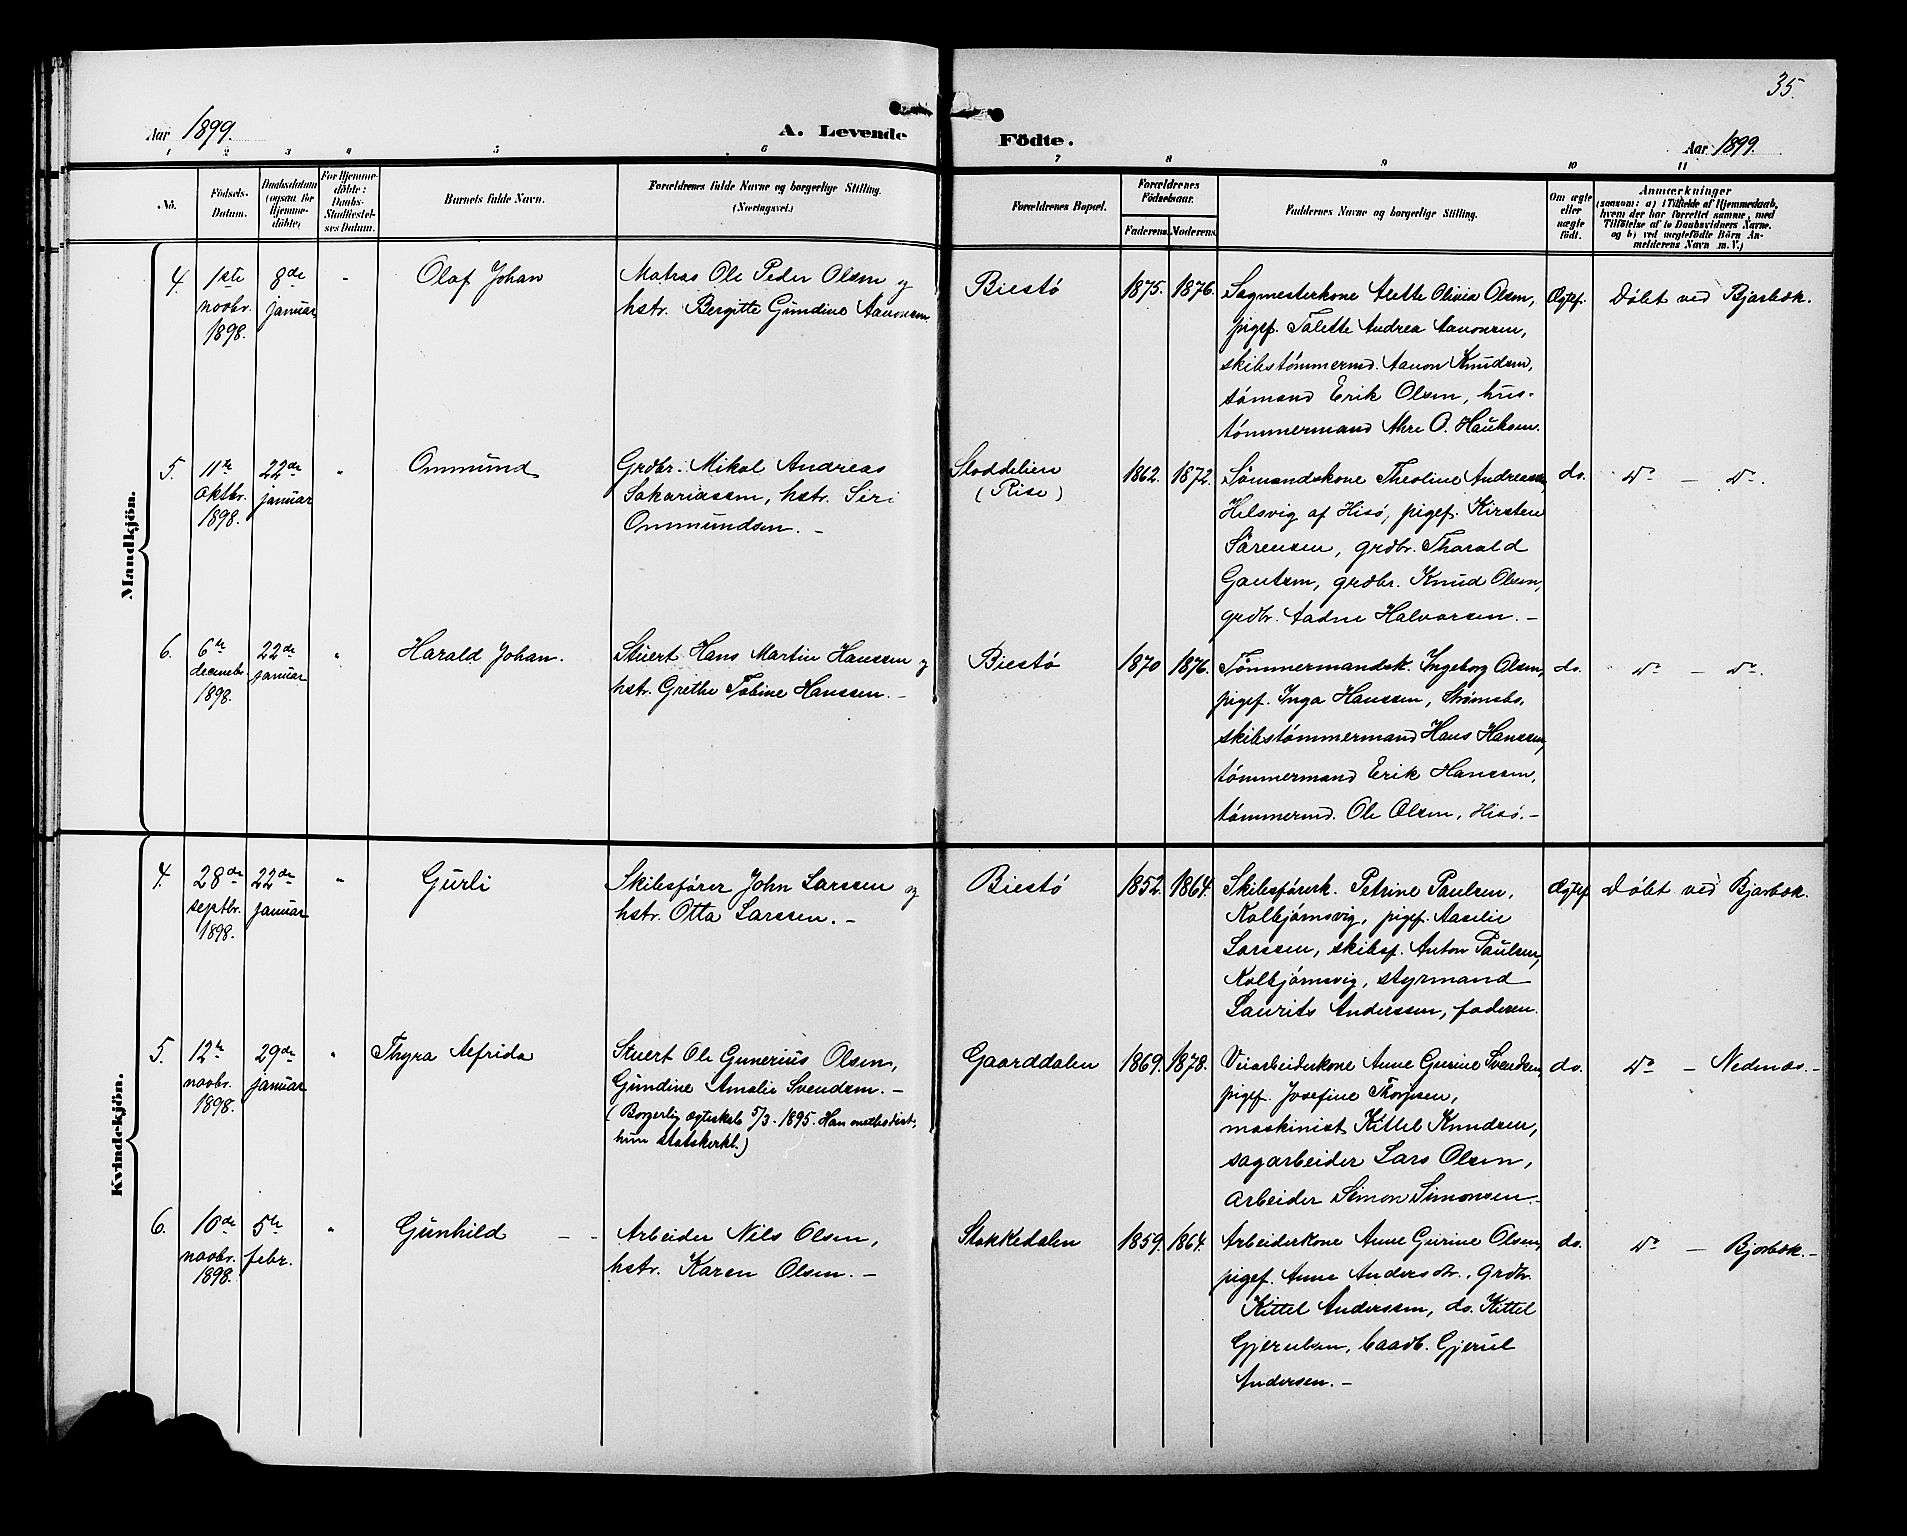 35.
Aar 1899.
A. Levende
Födte.
Aar 1899.
1 2 3 4 5 6 7 8 9 10 11
No.
Födsels-Datum.
Daabsdatum (ogsaa for Hjemme-döbte)
For Hjemme-döbte: Daabs-Stadfæstel-ses Datum.
Barnets fulde Navn.
Forældrenes fulde Navne og borgerlige Stilling. (Næringsvei.)
Forældrenes Bopæl.
Forældrenes Fødselsaar.
Faderens. Moderens.
Faddernes Navne og borgerlige Stilling.
Om ægte eller uægte født.
Anmærkninger
(saasom: a) i Tilfælde af Hjemmedaab,
hvem der har forrettet samme, med
Tilföielse af to Daabsvidners Navne.
og b) ved uægtefödte Börn An-
melderens Navn m. V.)
Mandkjön.
4. 1ste novbr. 1898. 8de januar - Olaf Johan
Matros Ole Peder Olsen og
hstr. Bergitte Gundine Aanonsen.
Biestø 1875. 1876.
Sagmesterkone Alette Olivia Olsen,
pigef. Talette Andrea Aanonsen,
skibstømmermd. Aanon Knudsen,
sømand Erik Olsen, hus-
tømmermand Thre O. Hauksen.
Ægtef. Døbt ved Bjorbæk.
5. 11te oktbr. 1898. 22de januar " Ommund
Grdbr. Mikal Andreas
Sakariassen, hstr. Siri
Ommundsen. -
Stoddelien (Rise) 1862. 1872.
Sømandskone Theoline Andreassen,
Helsvig af Hisø, pigef. Kirsten
Sørensen, grdbr. Tharald
Gautsen, grdbr. Knud Olsen,
grdbr. Aadne Halvorsen. -
do. Do - Do.
6. 6te decembr. 1898. 22de januar " Harald Johan.
Stuert Hans Martin Hanssen og
hstr. Grethe Tobine Hanssen. -
Biestø 1870 1876.
Tømmermandsk. Ingeborg Olsen,
pigef. Inga Hanssen, Strømsbo,
skibstømmermand Hans Hanssen,
tømmermand Erik Hanssen,
tømmermd. Ole Olsen, Hisø. -
do. Do - Do.
Kvindekjön.
4. 28de septbr. 1898. 22de januar " Gurli
Skibsfører John Larssen og
hstr. Otta Larssen. -
Biestø 1852. 1864.
Skibsførerk. Petrine Paulsen,
Kolbjørnsvig, pigef. Aasilie
Larssen, skibsf. Anton Paulsen,
Kolbjørnsvig, styrmand
Laurits Anderssen, faderen.
Ægtef. Døbt ved Bjorbæk.
5. 12te novbr. 1898. 29de januar " Thyra Alfrida
Stuert Ole Gunerius Olsen,
Gundine Amalie Svendsen. -
(Borgerlig ægteskab 5/3 - 1895. Han methodist,
hun statskirkl.)
Gaarddalen 1869. 1878.
Veiarbeiderkone Anne Gurine Svendsen,
pigef. Josefine Thorjusen,
maskinist Kittel Knudsen,
sagarbeider Lars Olsen,
arbeider Simon Simonsen.
do. Do - Nedenæs. -
6. 10de novbr. 1898. 5te febr. " Gunhild - -
Arbeider Nils Olsen,
hstr. Karen Olsen. -
Stokkedalen 1859. 1864.
Arbeiderkone Anne Gurine Olsen,
pigef. Anne Andersdtr., grdbr.
Kittel Anderssen, do. Kittel
Gjerulsen, baadb. Gjerul
Andersen. -
do. Do - Bjorbæk. -